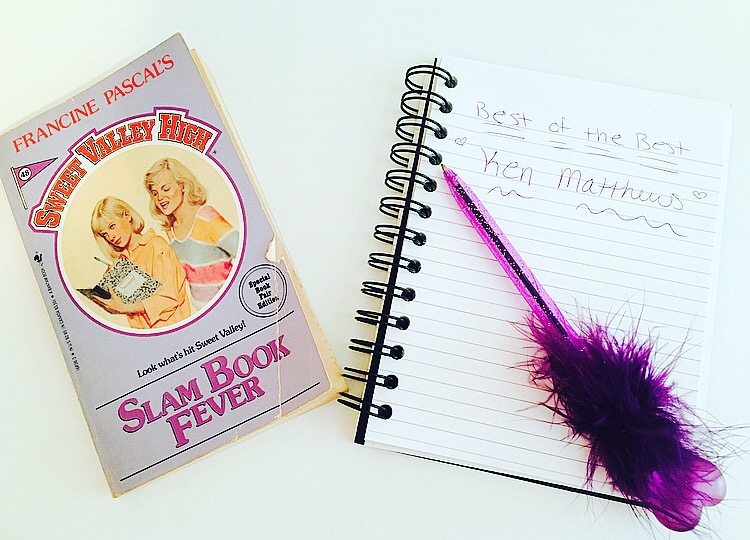 FRANCINE PASCAL'S
48
SWEET VALLEY HIGH
Special
Book
Fair
Edition
Look what's hit Sweet Valley!
SLAM BOOK
FEVER
Best of the Best
Ken Matthews